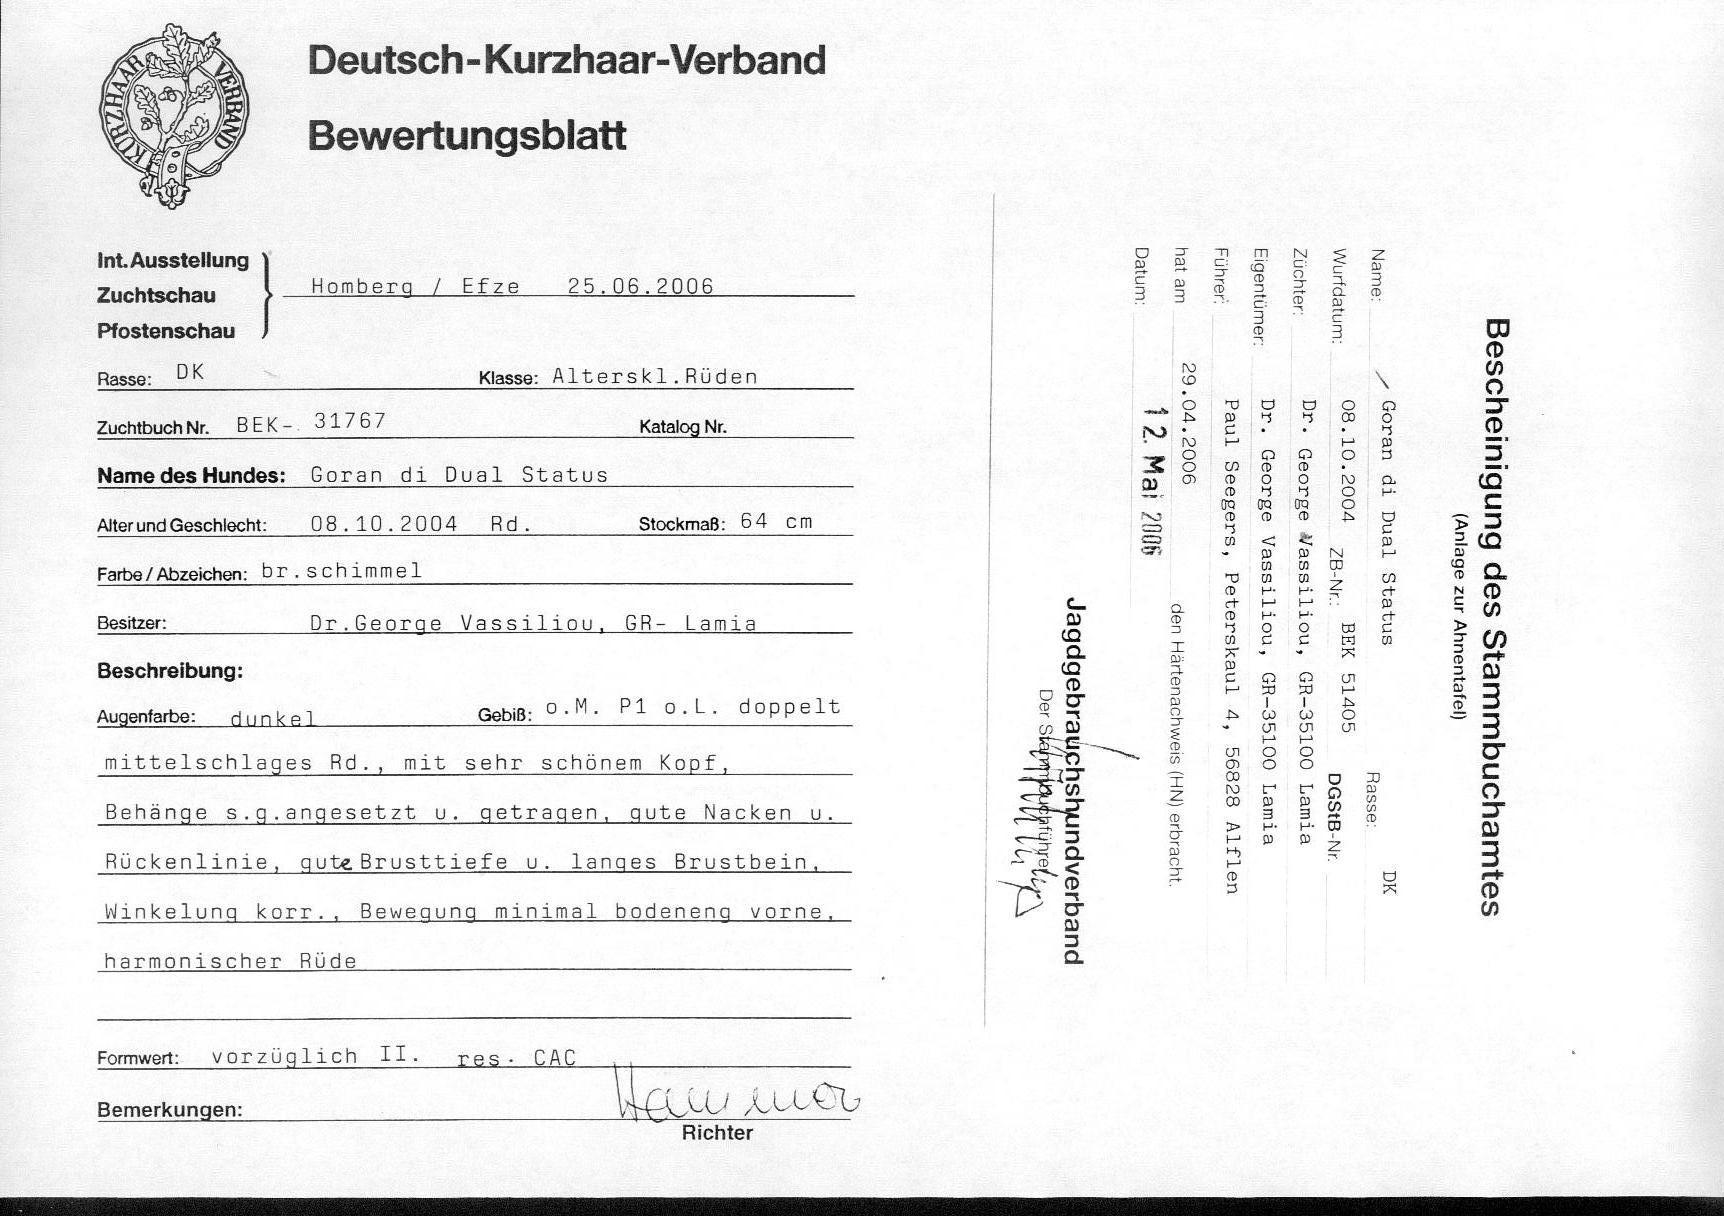 KURZHAAR VERBAND
Deutsch-Kurzhaar-Verband
Bewertungsblatt
Int. Ausstellung
Zuchtschau
Pfostenschau
Homberg / Efze 25.06.2006
Rasse: DK Klasse: Alterskl.Rüden
Zuchtbuch Nr. BEK- 31767 Katalog Nr.
Name des Hundes: Goran di Dual Status
Alter und Geschlecht: 08.10.2004 Rd. Stockmaß: 64 cm
Farbe / Abzeichen: br.schimmel
Besitzer: Dr.George Vassiliou, GR- Lamia
Beschreibung:
Augenfarbe: dunkel Gebiß: o.M. P1 o.L. doppelt
mittelschlages Rd., mit sehr schönem Kopf,
Behänge s.g.angesetzt u. getragen, gute Nacken u.
Rückenlinie, gute Brusttiefe u. langes Brustbein,
Winkelung korr., Bewegung minimal bodeneng vorne,
harmonischer Rüde
Formwert: vorzüglich II. res. CAC
Bemerkungen:
Richter
Bescheinigung des Stammbuchamtes
(Anlage zur Ahnentafel)
Name: Goran di Dual Status Rasse: DK
Wurfdatum: 08.10.2004 ZB-Nr.: BEK 51405 DGStB-Nr.
Züchter: Dr. George Vassiliou, GR-35100 Lamia
Eigentümer: Dr. George Vassiliou, GR-35100 Lamia
Führer: Paul Seegers, Peterskaul 4, 56828 Alflen
hat am 29.04.2006 den Härtenachweis (HN) erbracht.
Datum: 12. Mai 2006
Jagdgebrauchshundverband
Der Stammbuchführer